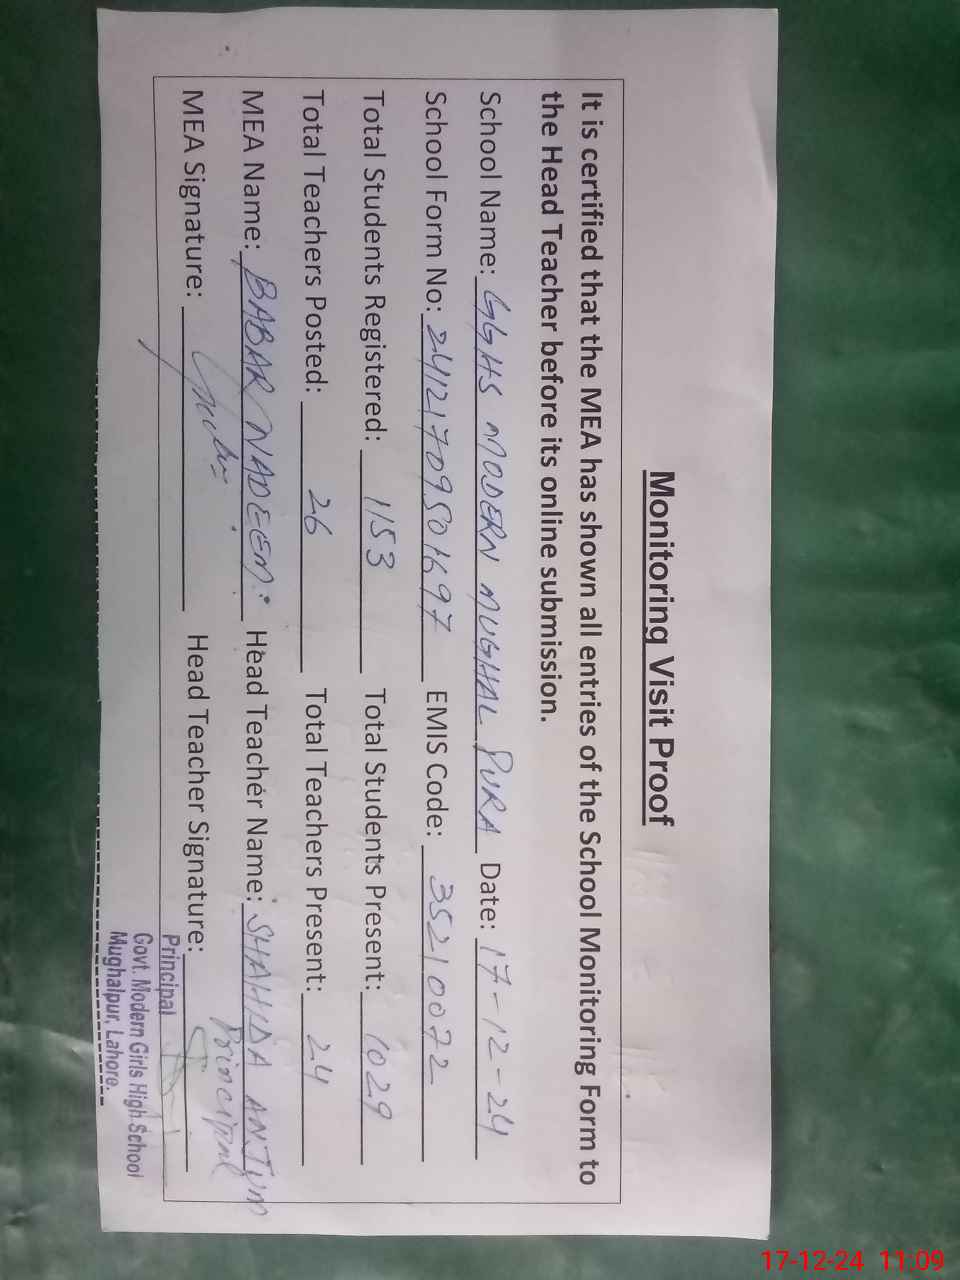 Monitoring Visit Proof
It is certified that the MEA has shown all entries of the School Monitoring Form to
the Head Teacher before its online submission.
School Name: GGHS MODERN MUGHAL PURA Date: 17-12-24
School Form No: 24121709501697 EMIS Code: 35210072
Total Students Registered: 1153 Total Students Present: 1029
Total Teachers Posted: 26 Total Teachers Present: 24
MEA Name: BABAR NADEEM: Head Teacher Name: SHAHIDA ANJUM
Principal
MEA Signature: Head Teacher Signature:
Principal
Govt. Modern Girls High School
Mughalpur, Lahore.
17-12-24 11:09